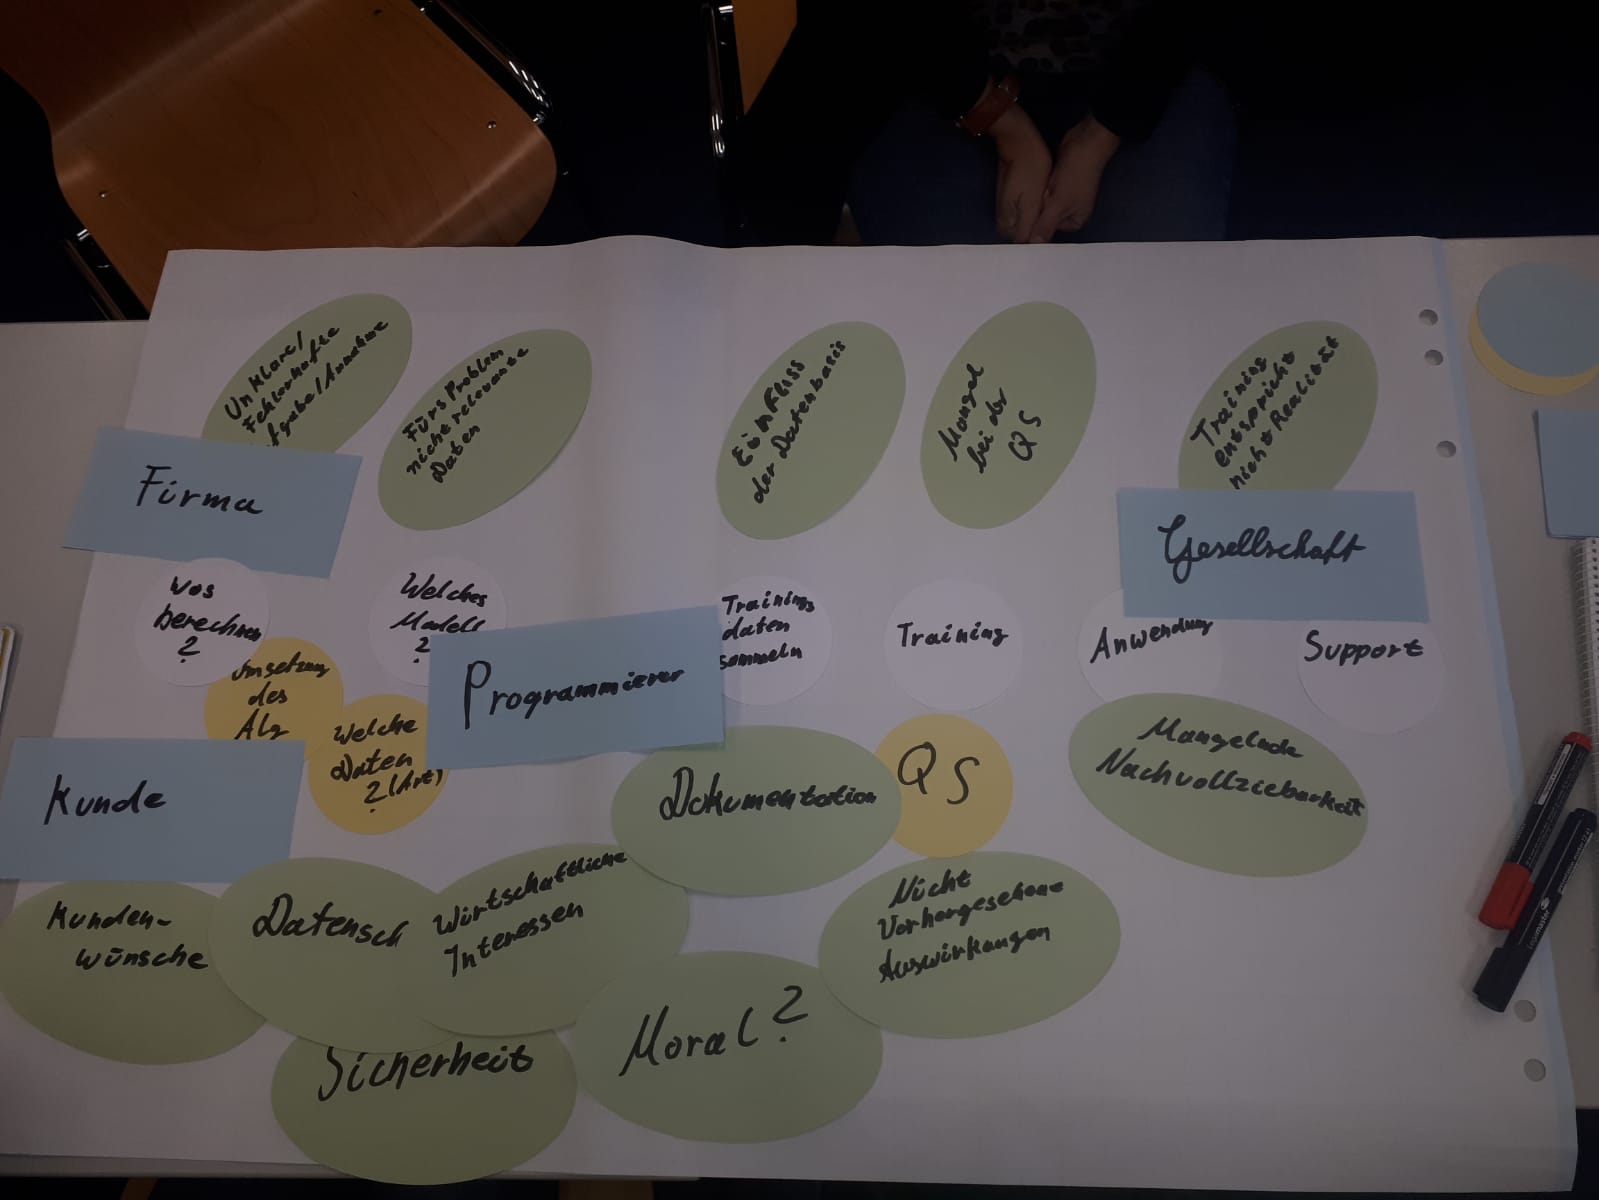 Unklare/
Fehlerhafte
fgabe/Annahme
Fürs Problem
nicht relevante
Daten
Einfluss
der Datenbasis
Mangel
bei der
QS
Training
entspricht
nicht Realität
Firma
Gesellschaft
Was
berechnen
?
Welches
Modell
?
Programmierer
Trainings
daten
sammeln
Training
Anwendung
Support
Umsetzung
des
Alg
Welche
Daten
? (Art)
Kunde
Dokumentation
QS
Mangelnde
Nachvollziebarkeit
Kunden-
wünsche
Datensch
Wirtschaftliche
Interessen
Nicht
Vorhergesehene
Auswirkungen
Sicherheit
Moral?